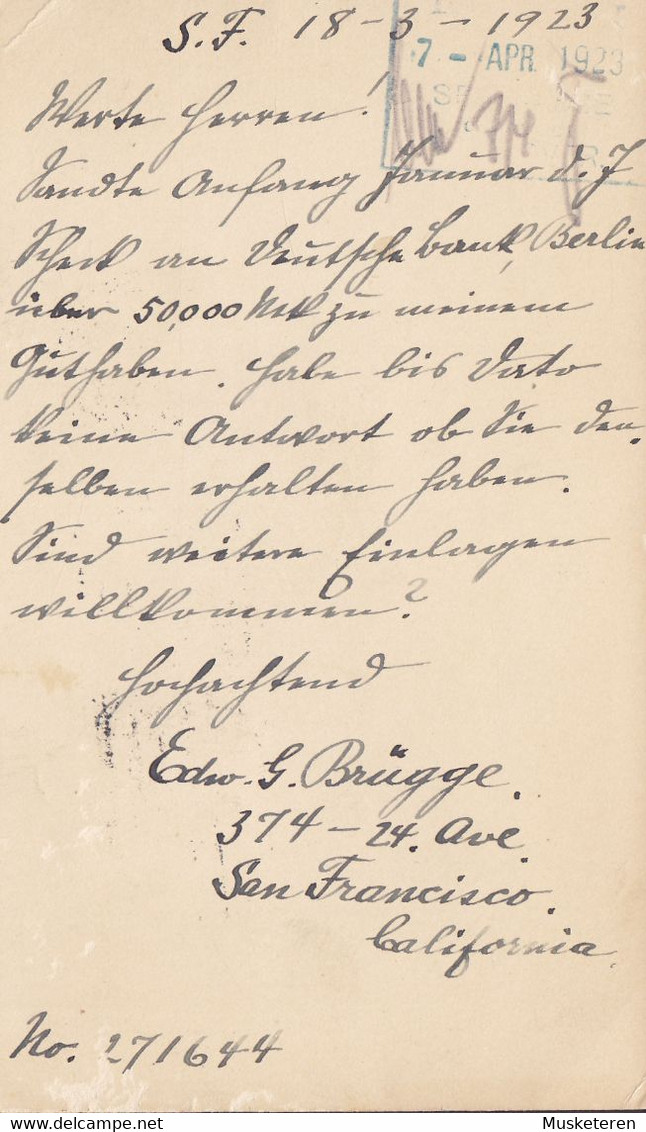 S.F. 18-3-1923
7 - APR 1923
Werte Herren!
Sandte Anfang Januar d. J
Scheck an Deutsche Bank, Berlin
über 50,000 Mk zu meinem
Guthaben. Habe bis Dato
keine Antwort ob Sie den-
selben erhalten haben.
Sind weitere Einlagen
willkommen?
Hochachtend
Edw. G. Brügge.
374-24. Ave.
San Francisco.
California.
No. 271644
Musketeren